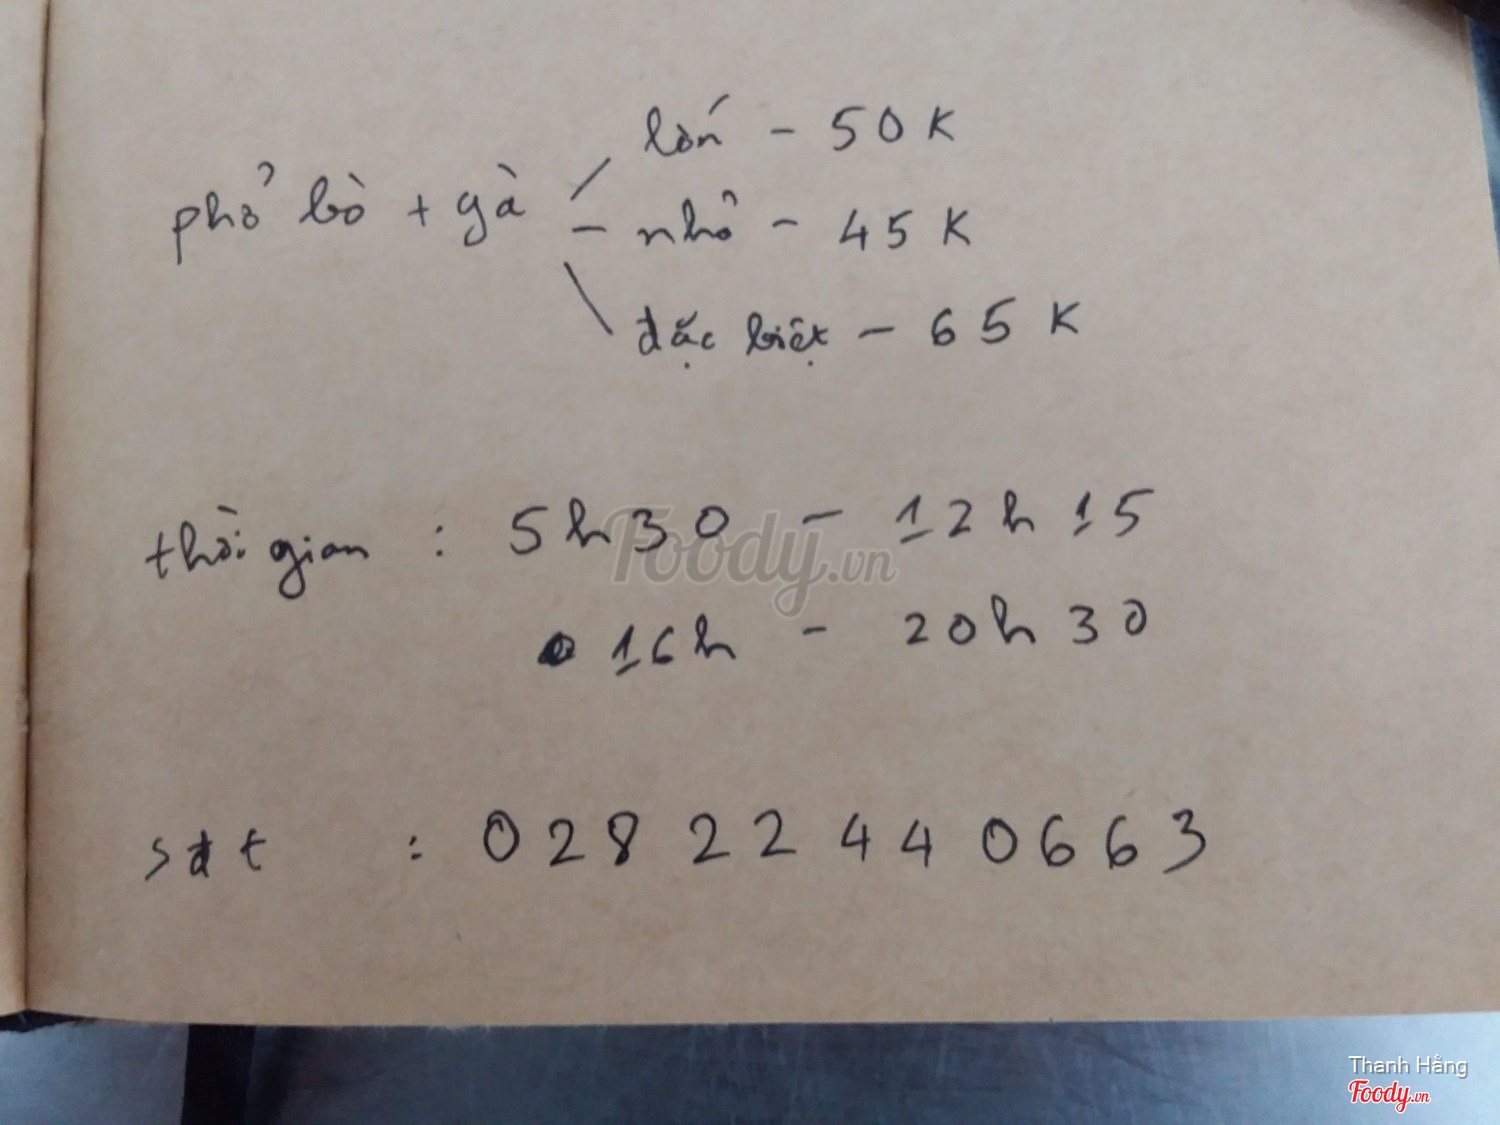 lớn - 50K
phở bò + gà - nhỏ - 45K
đặc biệt - 65K
thời gian : 5h30 - 12h15
16h - 20h30
sđt : 028 22 44 0663
Foody.vn
Thanh Hằng
Foody.vn